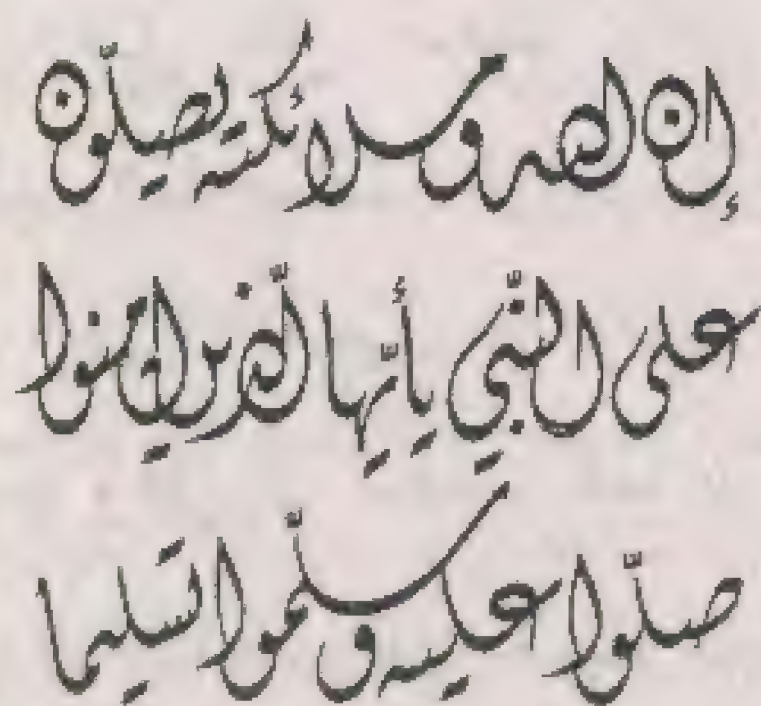 إن الله وملائكته يصلون
على النبي يأيها الذين امنوا
صلوا عليه وسلموا تسليما